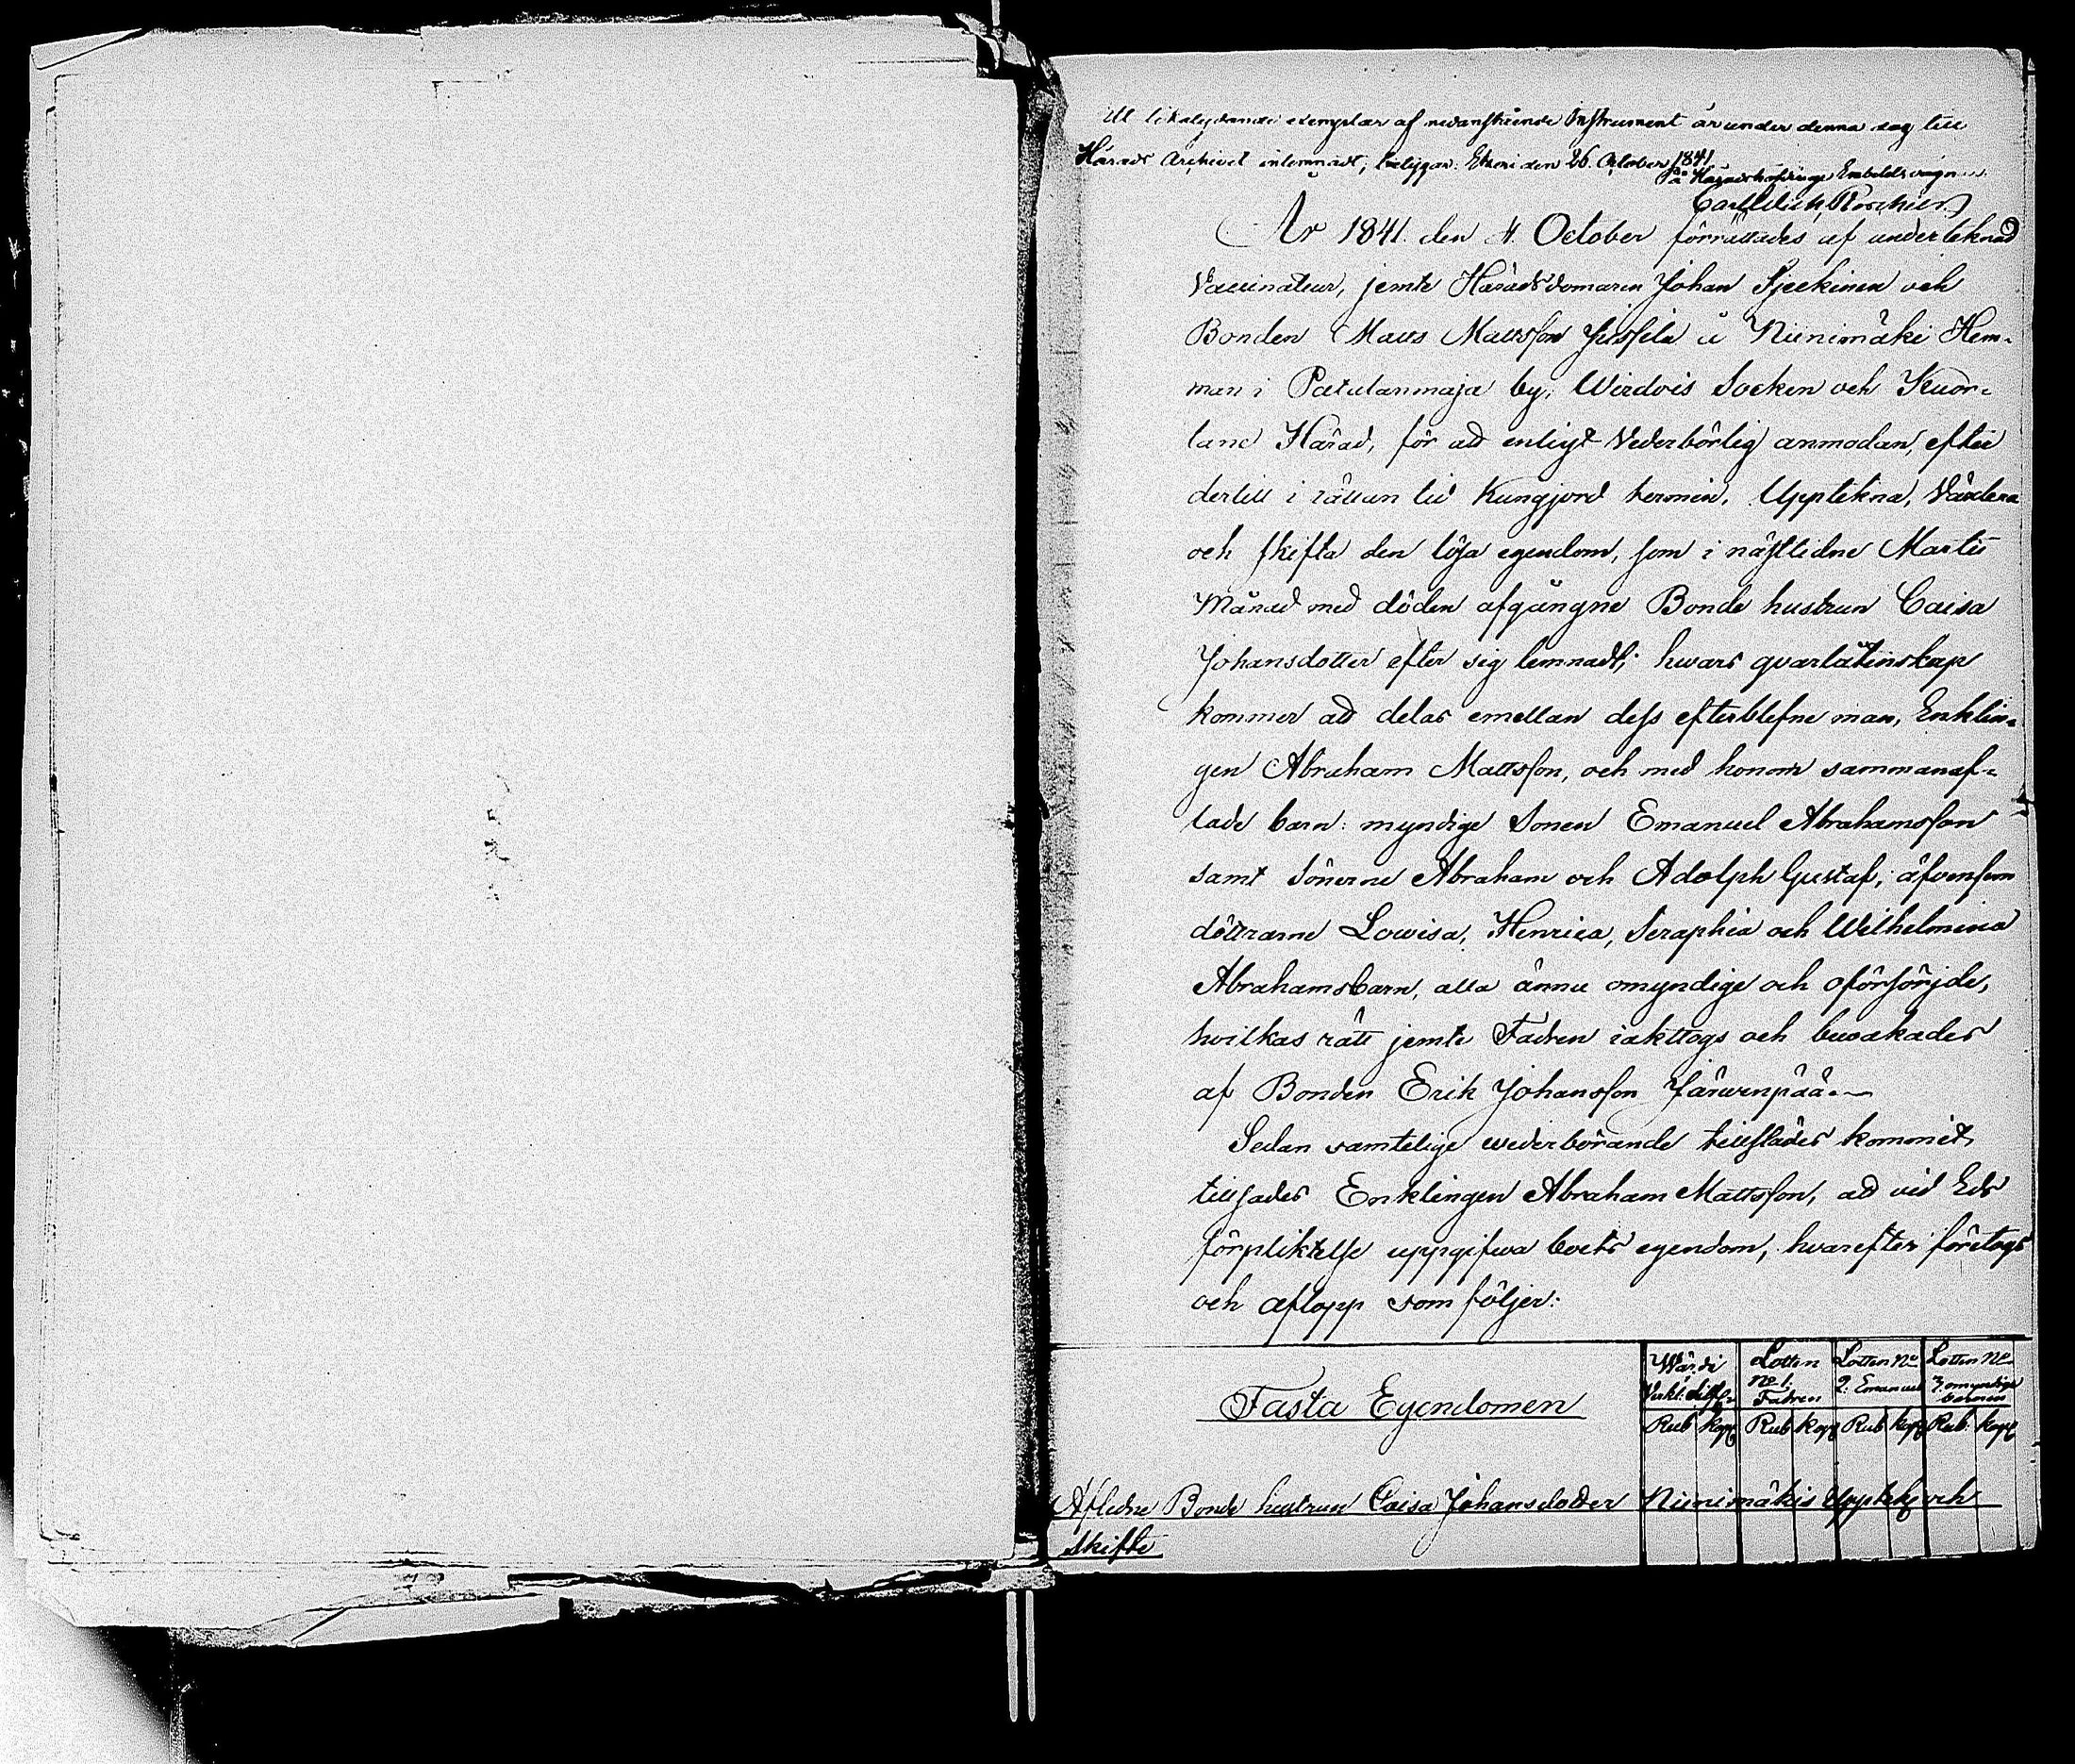 Ett likalydande exemplar af nedanstående Instrument är under denna dag till
Härads Archivet inlemnadt; betygar. Etseri den 26. October 1841.
På Häradshöfdinge Embetets vägnar
Carl Ulrich
År 1841. den 4. October förrättades af underteknad
Vaccinateur, jemte Häradsdomaren Johan Sjeckinen och
Bonden Matts Mattsson Jussila å Niinimäki Hem-
man i by, Wirdois Socken och Kuor-
tane Härad, för att enligt Vederbörlig anmodan, efter
dertill i rättan tid Kungjord termin, Upptekna, Värdera
och skifta den lösa egendom, som i nässtledne Martii
Månad med döden afgångne Bonde hustrun Caisa
Johansdotter efter sig lemnadt; hwars qvarlåtenskap
kommer att delas emellan dess efterblefne man, Enklin-
gen Abraham Mattsson, och med honom sammanaf-
lade barn: myndige Sonen Emanuel Abrahamsson
samt Sönerne Abraham och Adolph Gustaf, äfvensom
döttrarne Lowisa, Henrica, Seraphia och Wilhelmina
Abrahamsbarn, alla ännu omyndige och oförsörjde,
hvilkas rätt jemte Fadren iakttogs och bevakades
af Bonden Erik Johansson Järwenpää.
Sedan samtelige wederbörande tillstädes kommit,
tillsades Enklingen Abraham Mattsson, att vid Eds
förpliktelse uppgifwa boets egendom, hvarefter företogs
och aflopp som följer:
Fasta Egendomen
Wärde Lotten Lotten No Lotten No
No 1. 2. Emanuel 3. omyndige
Fadren barnen
Rub kop Rub kop Rub kop Rub. kop
Aflidne Bonde hustrun Caisa Johansdotter Niinimäkis Upptekg och
Skifte